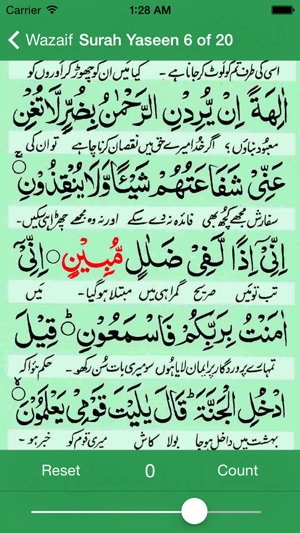 Carrier 1:28 AM
Wazaif Surah Yaseen 6 of 20
اسی کی طرف تم کو لوٹ کر جانا ہے - کیا میں ان کو چھوڑ کر اوروں کو
اٰلِهَةً اِنْ يُّرِدْنِ الرَّحْمٰنُ بِضُرٍّ لَّا تُغْنِ
معبود بناؤں؟ اگر خدا میرے حق میں نقصان کرنا چاہے تو ان کی
عَنِّيْ شَفَاعَتُهُمْ شَيْـًٔا وَّلَا يُنْقِذُوْنِ
سفارش مجھے کچھ بھی فائدہ نہ دے سکے اور نہ وہ مجھے چھڑا ہی سکیں۔
اِنِّيْٓ اِذًا لَّفِيْ ضَلٰلٍ مُّبِيْنٍ اِنِّيْٓ
تب تو میں صریح گمراہی میں مبتلا ہوگیا - میں
اٰمَنْتُ بِرَبِّكُمْ فَاسْمَعُوْنِ ط قِيْلَ
تمہارے پروردگار پر ایمان لایا ہوں سو میری بات سُن رکھو - حکم ہوا کہ
ادْخُلِ الْجَنَّةَ ط قَالَ يٰلَيْتَ قَوْمِيْ يَعْلَمُوْنَ
بہشت میں داخل ہوجا بولا کاش میری قوم کو خبر ہو -
Reset 0 Count